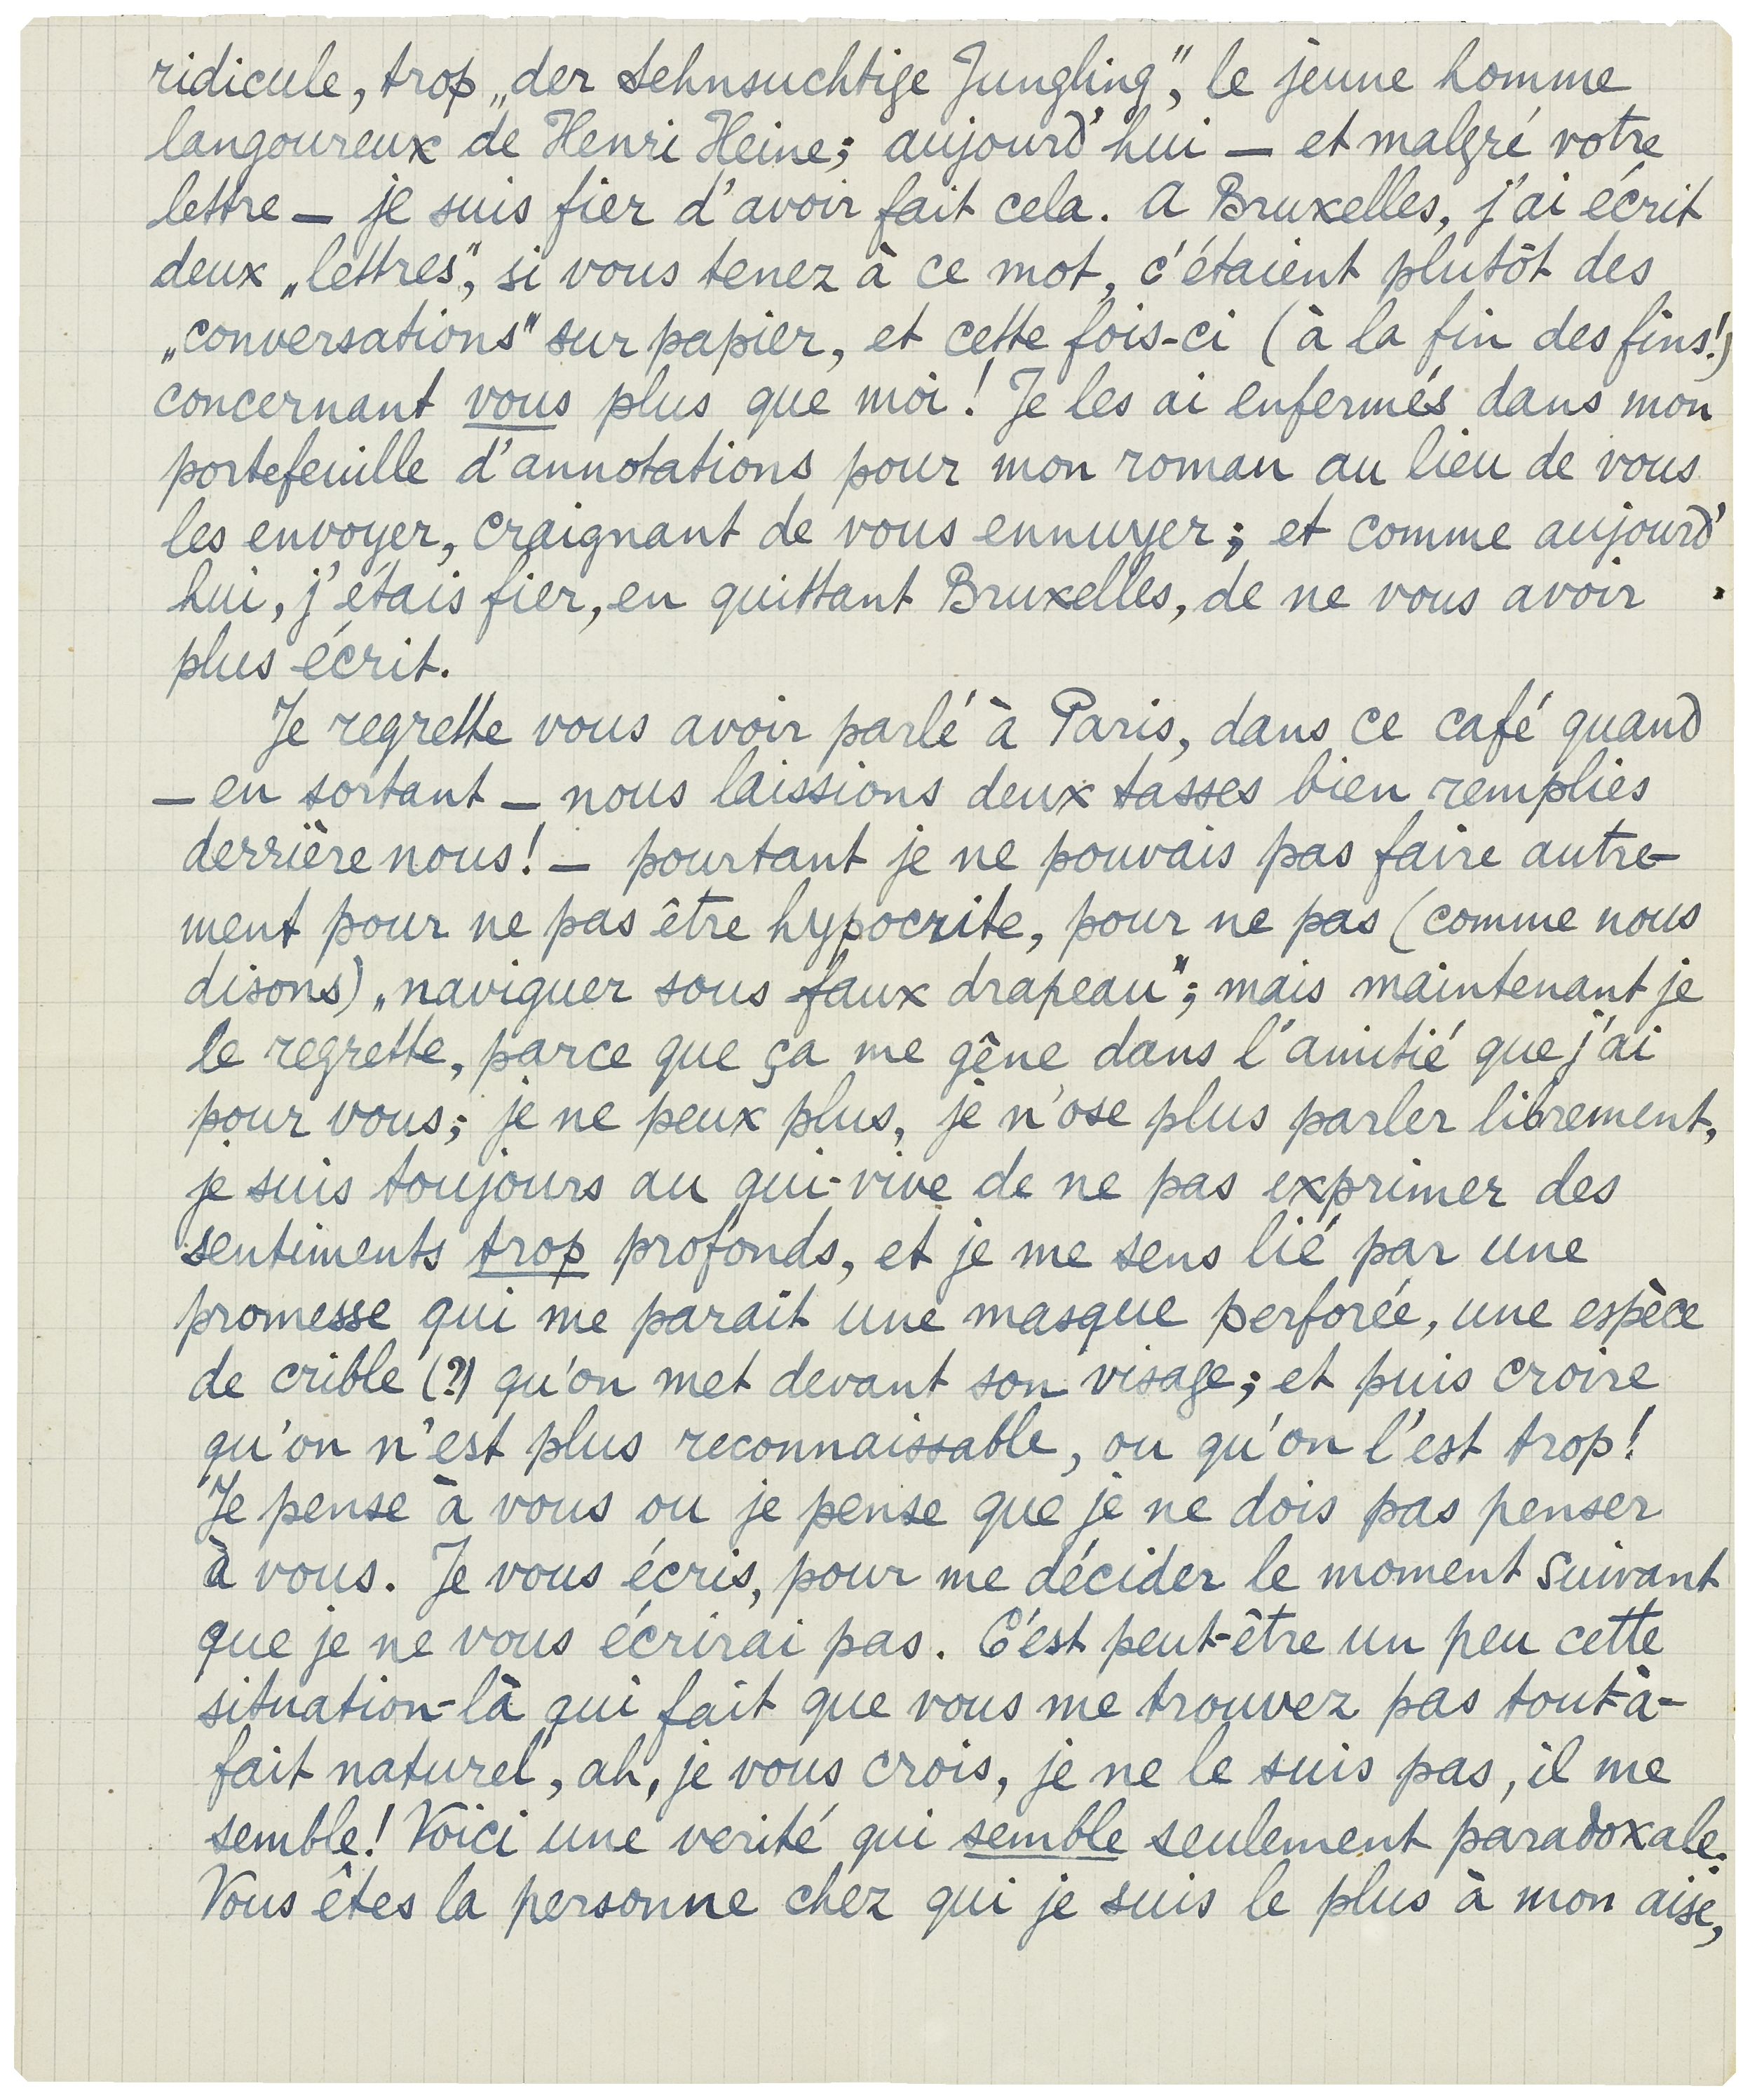 ridicule, trop „der Sehnsuchtige Jungling”, le jeune homme
langoureux de Henri Heine; aujourd'hui — et malgré votre
lettre — je suis fier d'avoir fait cela. A Bruxelles, j'ai écrit
deux „lettres”, si vous tenez à ce mot, c'étaient plutôt des
„conversations” sur papier, et cette fois-ci (à la fin des fins!)
concernant vous plus que moi! Je les ai enfermés dans mon
portefeuille d'annotations pour mon roman au lieu de vous
les envoyer, craignant de vous ennuyer; et comme aujourd'
hui, j'étais fier, en quittant Bruxelles, de ne vous avoir
plus écrit.
Je regrette vous avoir parlé à Paris, dans ce café quand
— en sortant — nous laissions deux tasses bien remplies
derrière nous! — pourtant je ne pouvais pas faire autre-
ment pour ne pas être hypocrite, pour ne pas (comme nous
disons) „naviguer sous faux drapeau”; mais maintenant je
le regrette, parce que ça me gêne dans l'amitié que j'ai
pour vous; je ne peux plus, je n'ose plus parler librement,
je suis toujours au qui-vive de ne pas exprimer des
sentiments trop profonds, et je me sens lié par une
promesse qui me parait une masque perforée, une espèce
de crible (?) qu'on met devant son visage; et puis croire
qu'on n'est plus reconnaissable, ou qu'on l'est trop!
Je pense à vous ou je pense que je ne dois pas penser
à vous. Je vous écris, pour me décider le moment suivant
que je ne vous écrirai pas. C'est peut-être un peu cette
situation-là qui fait que vous me trouvez pas tout-à-
fait naturel, ah, je vous crois, je ne le suis pas, il me
semble! Voici une verité qui semble seulement paradoxale:
Vous êtes la personne chez qui je suis le plus à mon aise,